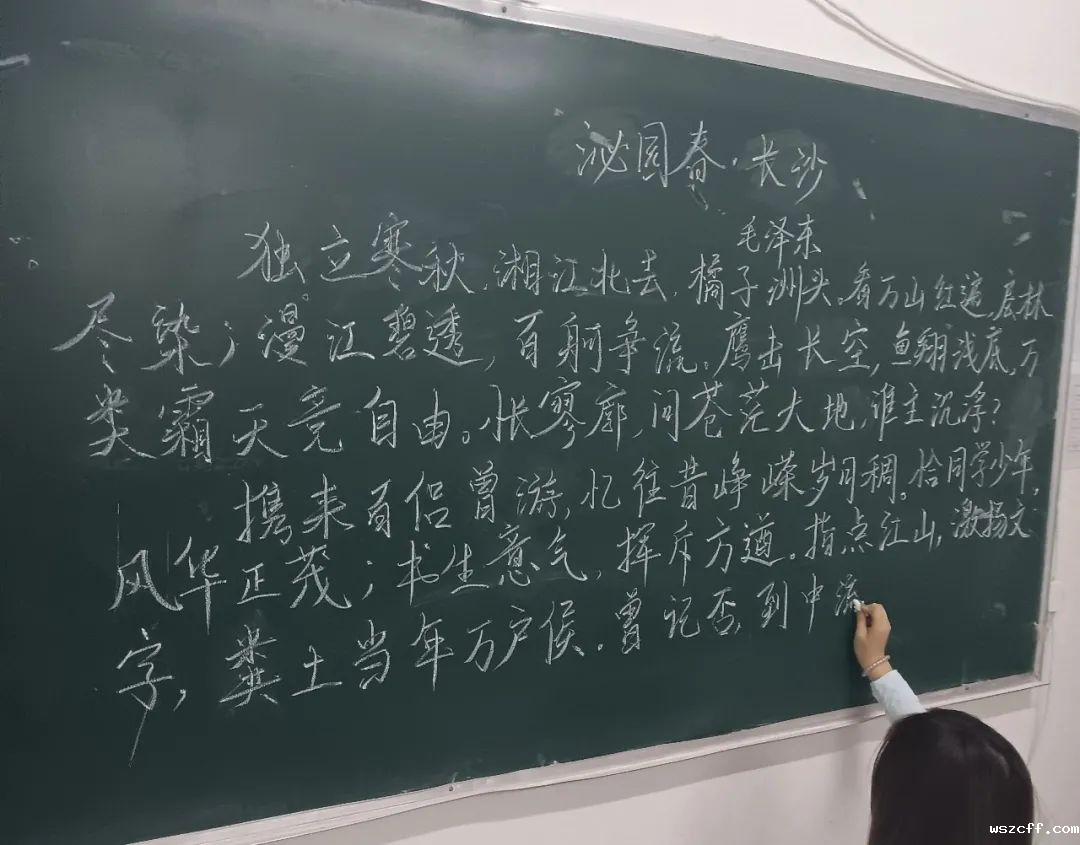 沁园春·长沙
毛泽东
独立寒秋,湘江北去,橘子洲头,看万山红遍,层林
尽染;漫江碧透,百舸争流。鹰击长空,鱼翔浅底,万
类霜天竞自由。怅寥廓,问苍茫大地,谁主沉浮?
携来百侣曾游,忆往昔峥嵘岁月稠。恰同学少年,
风华正茂;书生意气,挥斥方遒。指点江山,激扬文
字,粪土当年万户侯。曾记否,到中流
wszcff.com